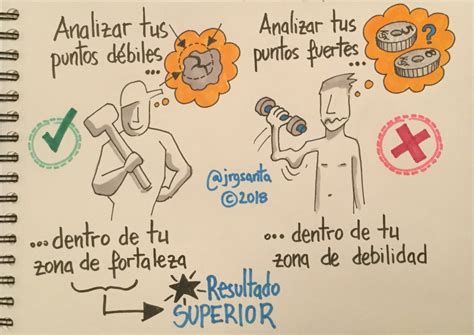 Analizar tus
puntos débiles...
Analizar tus
puntos fuertes...
?
@jrgsanta
©2018
...dentro de tu
zona de fortaleza
...dentro de tu
zona de debilidad
Resultado
SUPERIOR